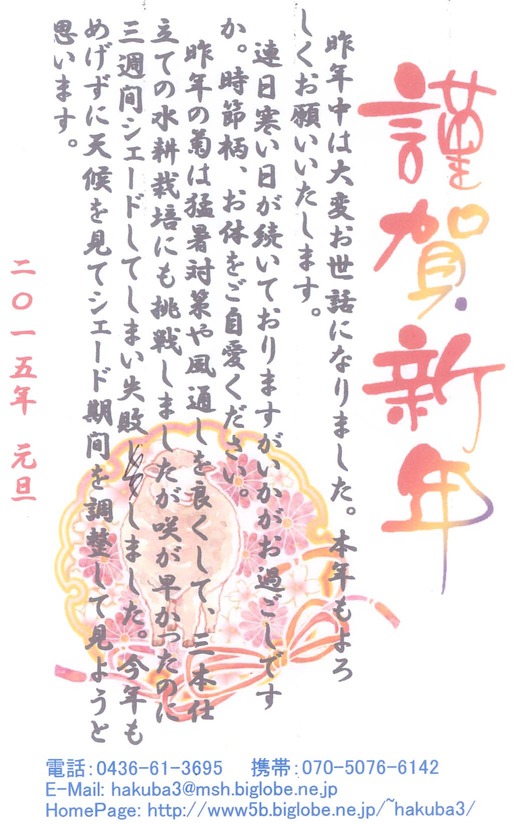 謹賀新年
昨年中は大変お世話になりました。本年もよろ
しくお願いいたします。
連日寒い日が続いておりますがいかがお過ごしです
か。時節柄、お体をご自愛ください。
昨年の菊は猛暑対策や風通しを良くして、三本仕
立ての水耕栽培にも挑戦しましたが咲が早かったのに
三週間シェードしてしまい失敗しました。今年も
めげずに天候を見てシェード期間を調整して見ようと
思います。
二〇一五年 元旦
電話：0436-61-3695 携帯：070-5076-6142
E-Mail: hakuba3@msh.biglobe.ne.jp
HomePage: http://www5b.biglobe.ne.jp/~hakuba3/